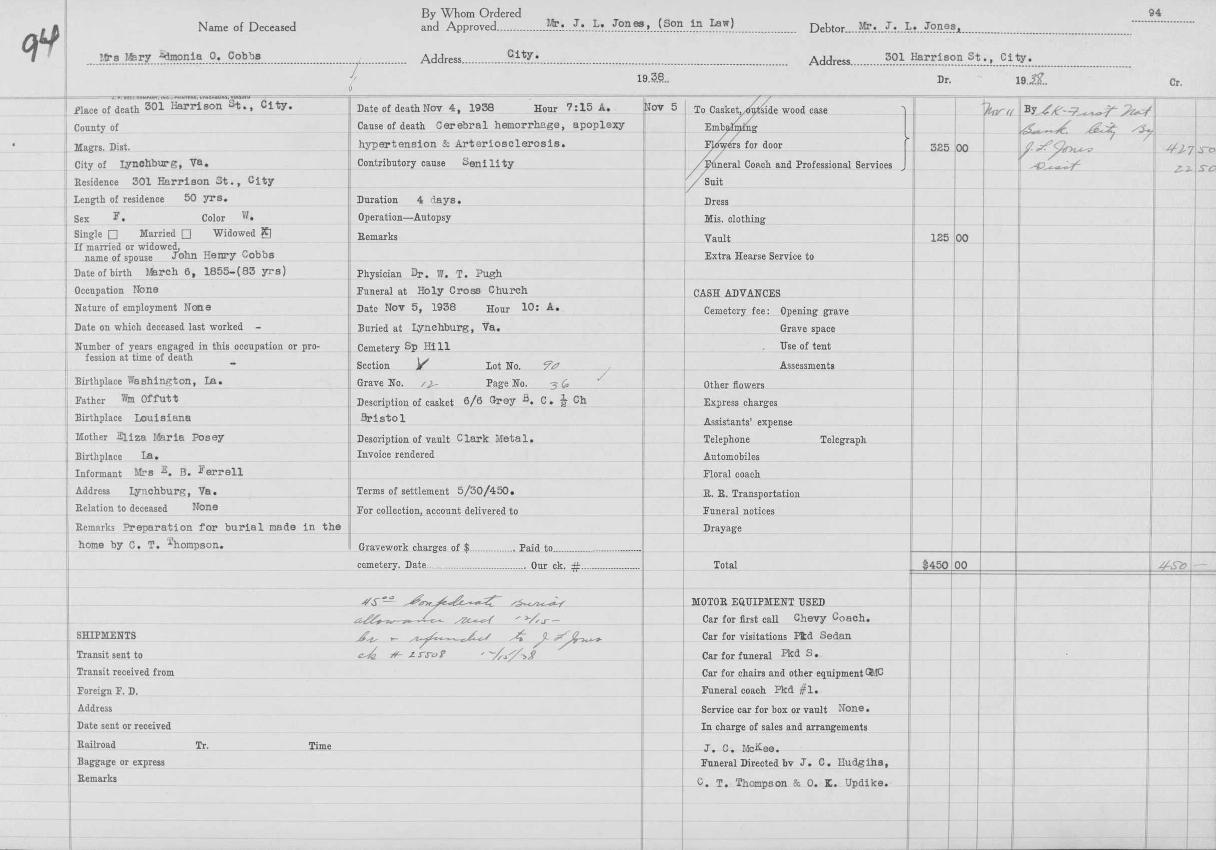 94
Name of Deceased
Mrs Mary Edmonia O. Cobbs
By Whom Ordered
and Approved Mr. J. L. Jones, (Son in Law)
Address City.
Debtor Mr. J. L. Jones,
Address 301 Harrison St., City.
94
1938
Dr. 1938 Cr.
Place of death 301 Harrison St., City.
County of
Magrs. Dist.
City of Lynchburg, Va.
Residence 301 Harrison St., City
Length of residence 50 yrs.
Sex F. Color W.
Single Married Widowed X
If married or widowed,
name of spouse John Henry Cobbs
Date of birth March 6, 1855-(83 yrs)
Occupation None
Nature of employment None
Date on which deceased last worked -
Number of years engaged in this occupation or pro-
fession at time of death -
Birthplace Washington, La.
Father Wm Offutt
Birthplace Louisiana
Mother Eliza Maria Posey
Birthplace La.
Informant Mrs E. B. Ferrell
Address Lynchburg, Va.
Relation to deceased None
Remarks Preparation for burial made in the
home by C. T. Thompson.
SHIPMENTS
Transit sent to
Transit received from
Foreign F. D.
Address
Date sent or received
Railroad Tr. Time
Baggage or express
Remarks
Date of death Nov 4, 1938 Hour 7:15 A.
Cause of death Cerebral hemorrhage, apoplexy
hypertension & Arteriosclerosis.
Contributory cause Senility
Duration 4 days.
Operation—Autopsy
Remarks
Physician Dr. W. T. Pugh
Funeral at Holy Cross Church
Date Nov 5, 1938 Hour 10: A.
Buried at Lynchburg, Va.
Cemetery Sp Hill
Section V Lot No. 90
Grave No. 12 Page No. 36
Description of casket 6/6 Grey B. C. ½ Ch
Bristol
Description of vault Clark Metal.
Invoice rendered
Terms of settlement 5/30/450.
For collection, account delivered to
Gravework charges of $ Paid to
cemetery. Date Our ck. #
45.00 Confederate burial
allowance recd 12/15-
&  refunded to J L Jones
ck # 25508 12/15/38
Nov 5 To Casket, outside wood case
Embalming
Flowers for door 325 00
Funeral Coach and Professional Services
Suit
Dress
Mis. clothing
Vault 125 00
Extra Hearse Service to
CASH ADVANCES
Cemetery fee: Opening grave
Grave space
Use of tent
Assessments
Other flowers
Express charges
Assistants' expense
Telephone Telegraph
Automobiles
Floral coach
R. R. Transportation
Funeral notices
Drayage
Total $450 00 450 —
MOTOR EQUIPMENT USED
Car for first call Chevy Coach.
Car for visitations Pkd Sedan
Car for funeral Pkd S.
Car for chairs and other equipment GMC
Funeral coach Pkd #1.
Service car for box or vault None.
In charge of sales and arrangements
J. C. McKee.
Funeral Directed by J. C. Hudgins,
C. T. Thompson & O. K. Updike.
Nov 11 By CK-First Nat
Bank City By
J. L. Jones 427 50
Disct 22 50